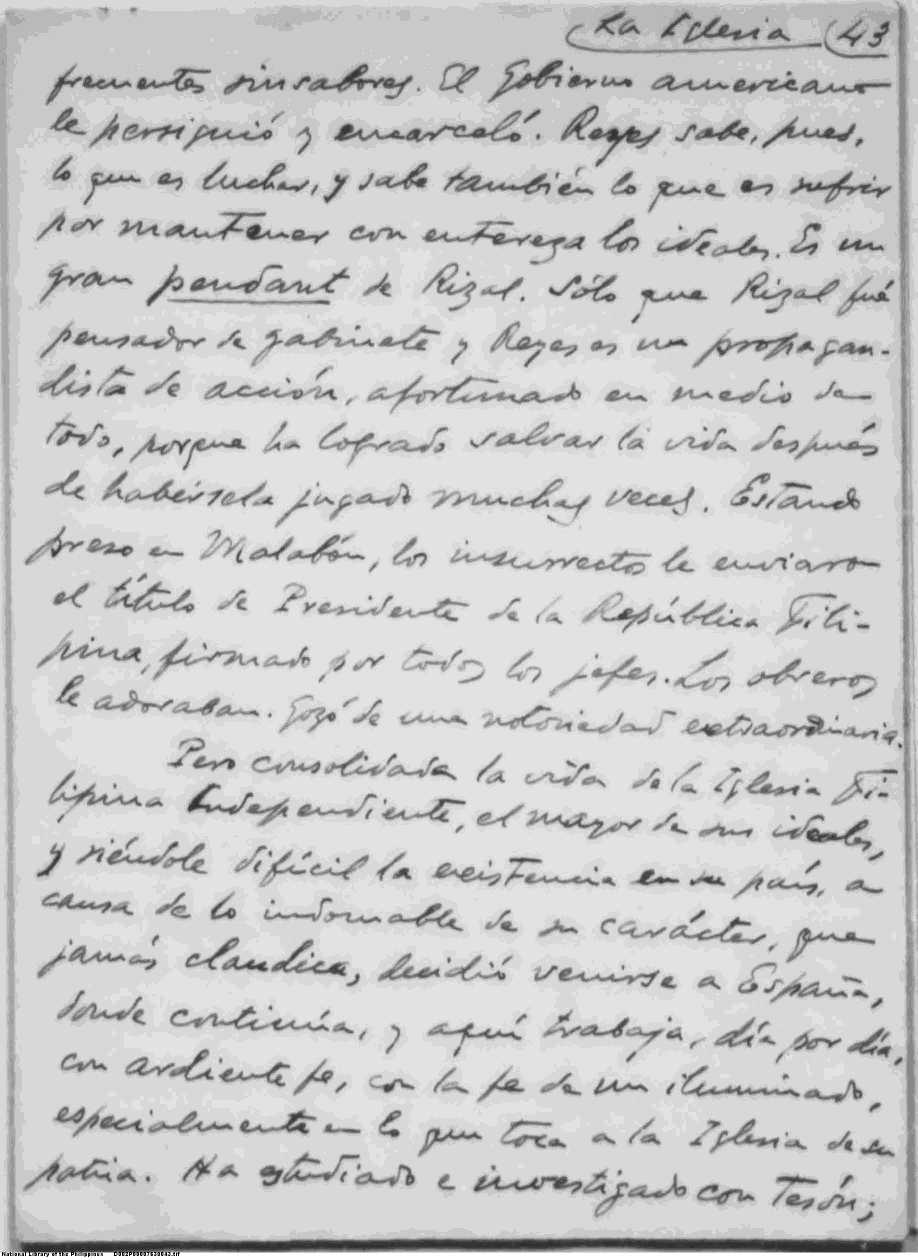 La Iglesia 43
frecuentes sinsabores. El Gobierno americano
le persiguió y encarceló. Reyes sabe, pues,
lo que es luchar, y sabe también lo que es sufrir
por mantener con entereza los ideales. Es un
gran pendant de Rizal. Sólo que Rizal fué
pensador de gabinete y Reyes es un propagan-
dista de acción, afortunado en medio de
todo, porque ha logrado salvar la vida después
de habérsela jugado muchas veces. Estando
preso en Malabón, los insurrectos le enviaron
el título de Presidente de la República Fili-
pina, firmado por todos los jefes. Los obreros
le adoraban. Gozó de una notoriedad extraordinaria.
Pero consolidada la vida de la Iglesia Fi-
lipina Independiente, el mayor de sus ideales,
y siéndole difícil la existencia en su país, a
causa de lo indomable de su carácter, que
jamás claudica, decidió venirse a España,
donde continúa, y aquí trabaja, día por día,
con ardiente fe, con la fe de un iluminado,
especialmente en lo que toca a la Iglesia de su
patria. Ha estudiado e investigado con tesón;
National Library of the Philippines D002P00007630043.tif